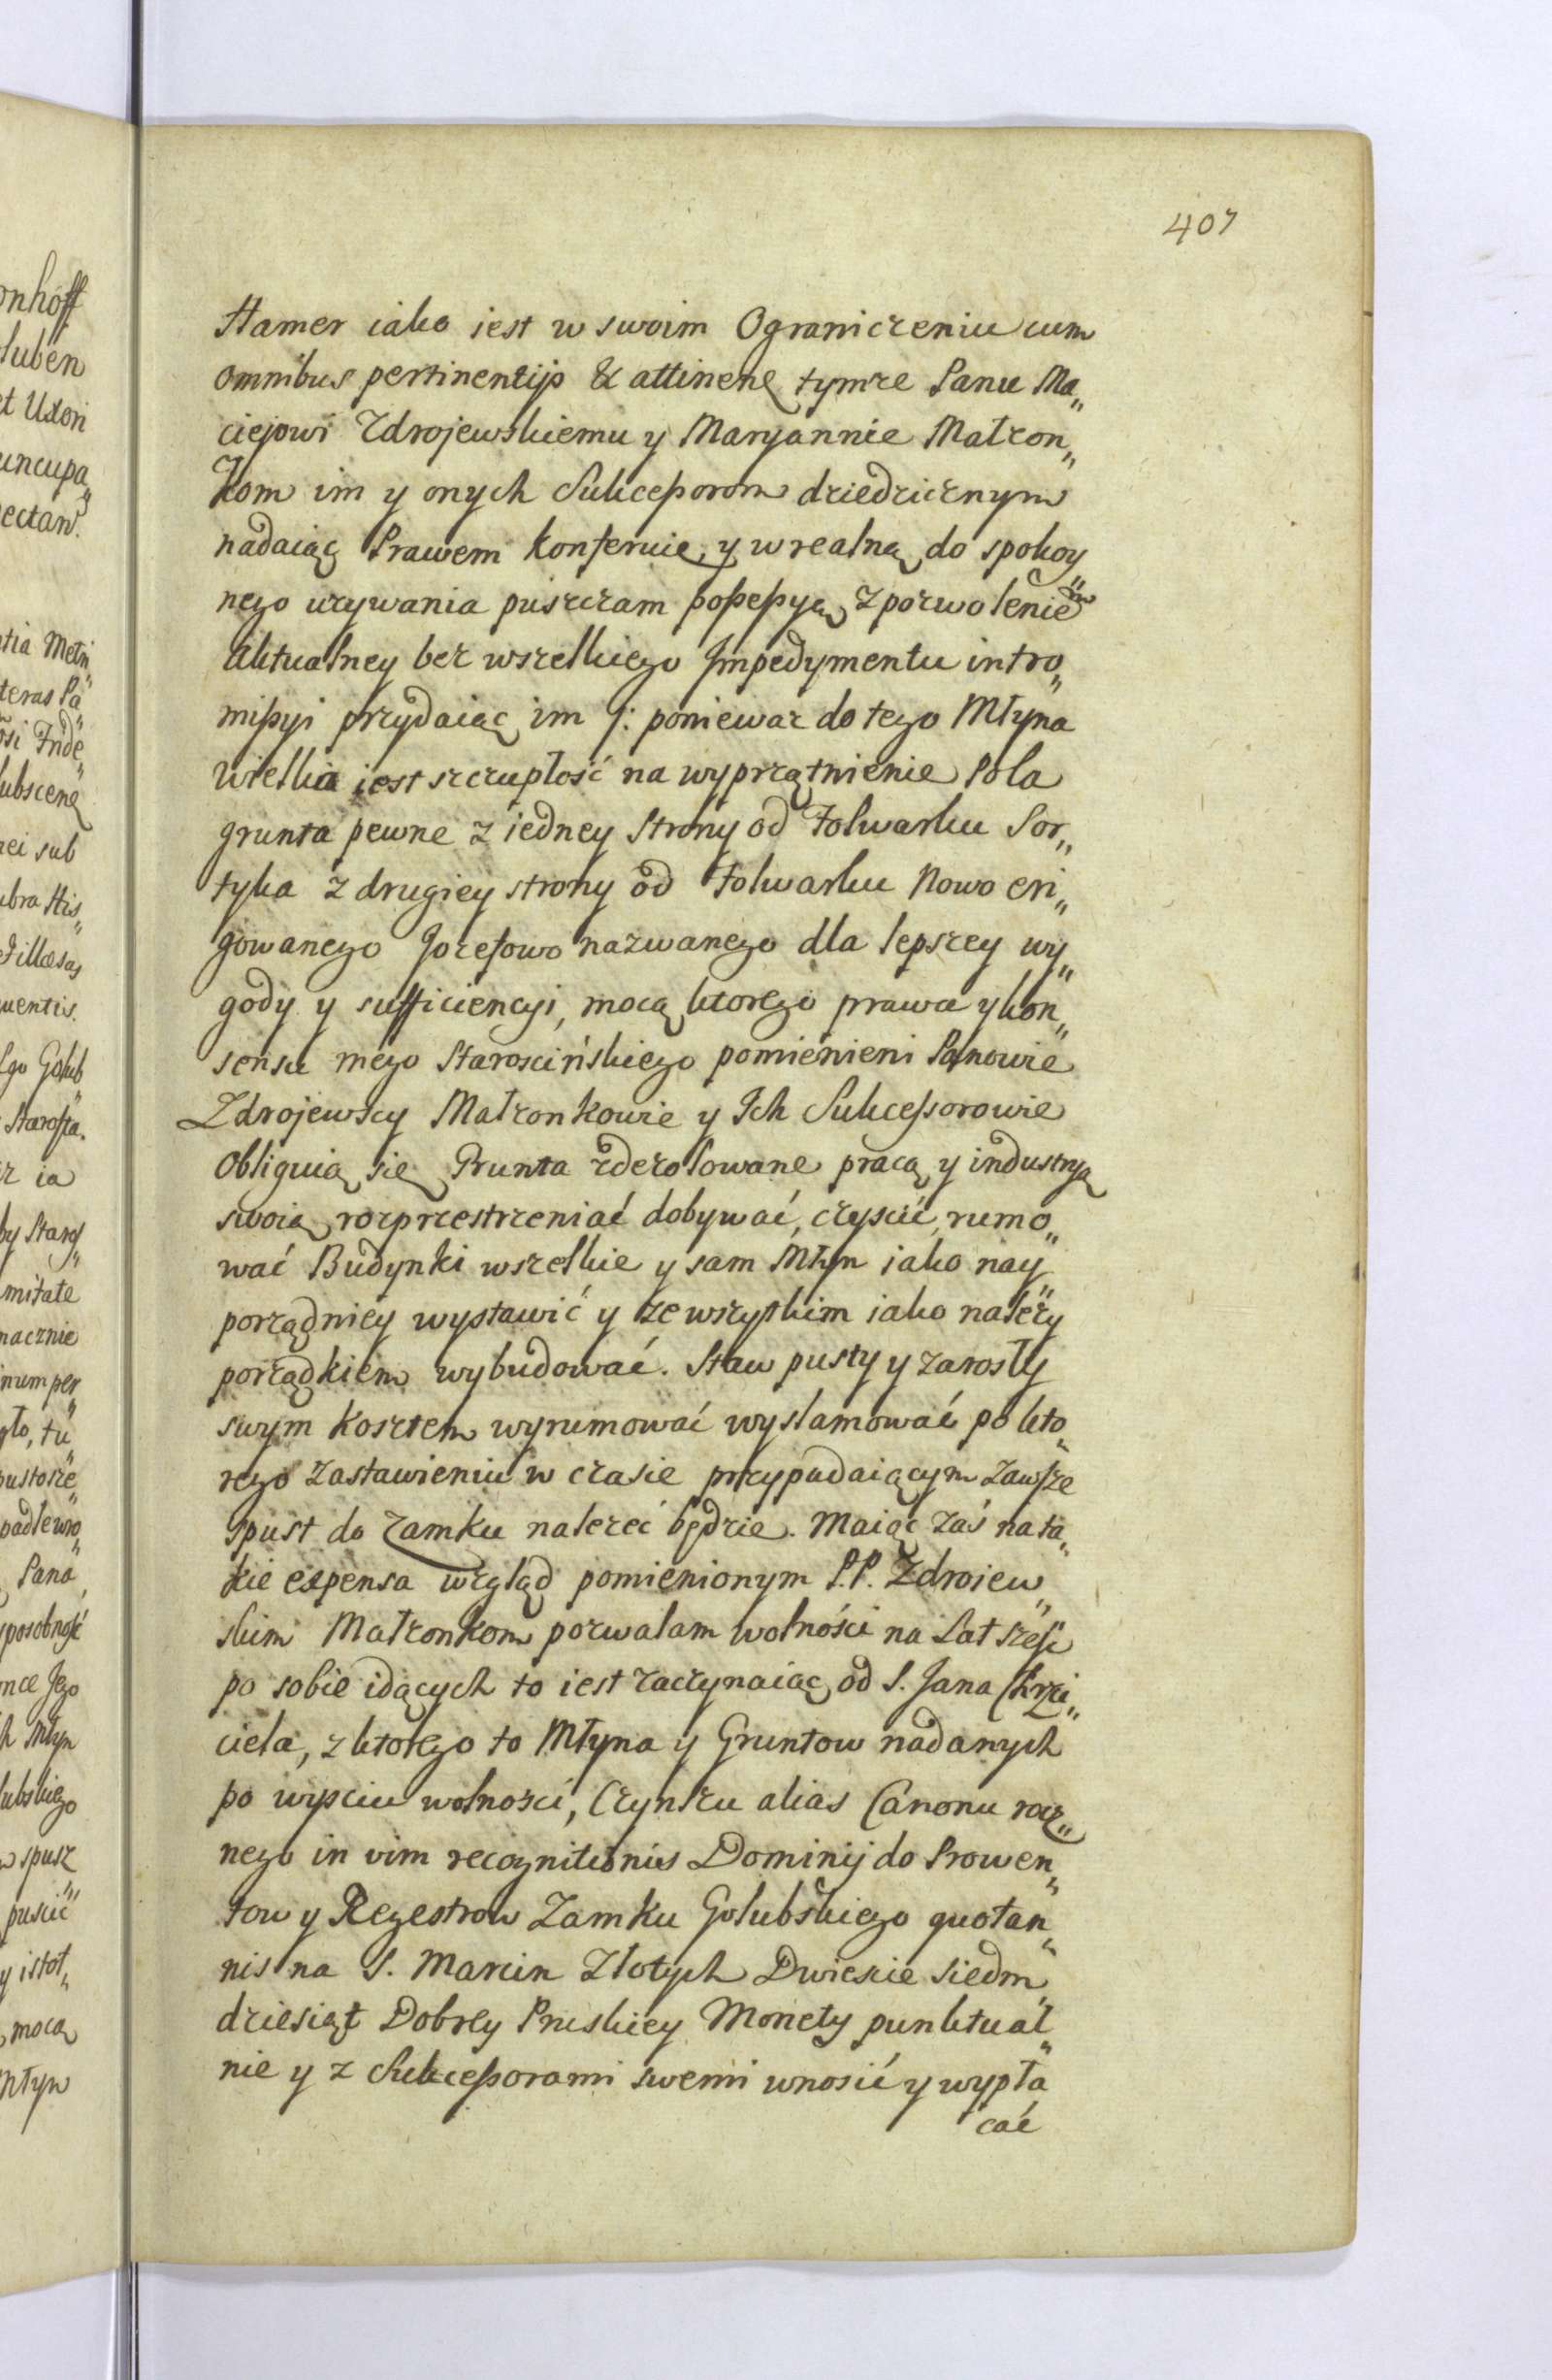 onhoff
luben
et Uxori
uncupa„
ectan.
ntia Metri„
teras Pa„
si Inde„
lubscenę
nei sub
ubra His„
Fillæsas
uentis.
Ego Golub„
Starosta.
r ia
by Staros„
mitate
nacznie
inum per„
gło, tu„
pustosze„
padłewo„
Pana
sposobność
nce Jego
h Młyn
lubskiego
w spusz„
puscić
y istot„
mocą
Młyn
407
Hamer iako iest w swoim Ograniczeniu cum
omnibus pertinentijs & attinenę tymże Panu Ma„
ciejowi Zdrojewskiemu y Maryannie Małzon„
Kom im y onych Sukceßorom dziedzicznym
nadaiąc Prawem Konferuię, y w realną do spokoy„
nego uzywania puszczam poßeßyą, z pozwoleniem
Aktualney bez wszelkiego Impedymentu intro„
mißyi przydaiąc im /: poniewaz do tego Młyna
Wielka iest szczupłość na wyprzątnienie Pola
grunta pewne z iedney Strony od Folwarku Sor„
tyka z drugiey strony od Folwarku Nowo eri„
gowanego Jozefowo nazwanego dla lepszey wy„
gody y sufficiencyi, mocą ktorego prawa y kon„
sensu mego Starościńskiego pomienieni Panowie
Zdrojewscy Małzonkowie y Ich Sukcessorowie
Obliguią się Grunta zdezolowane pracą y industryą
swoią rozprzestrzeniać dobywać, czyscić, rumo„
wać Budynki wszelkie y sam Młyn iako nay„
porządniey wystawić y ze wszystkim iako nalezy
porządkiem wybudować. Staw pusty y zarosły
swym Kosztem wyrumować wyslamować po kto„
rego zastawieniu w czasie przypadaiącym zawsze
spust do Zamku nalezeć będzie. Maiąc zaś na ta„
kie expensa wzgląd pomienionym P.P. Zdroiew„
skim Małzonkom pozwalam wolności na Lat sześć
po sobie idących to iest zaczynaiąc od S. Jana Chrzci„
ciela, z ktorego to Młyna y Gruntow nadanych
po wyściu wolności, Czynszu alias Canonu rocz„
nego in vim recognitionis Dominij do Prowen„
tow y Regestrow Zamku Golubskiego quotan„
nis na S. Marcin Złotych Dwiescie siedm„
dziesiąt Dobrey Pruskiey Monety punktual„
nie y z Sukceßorami swemi wnosić y wypła
cać